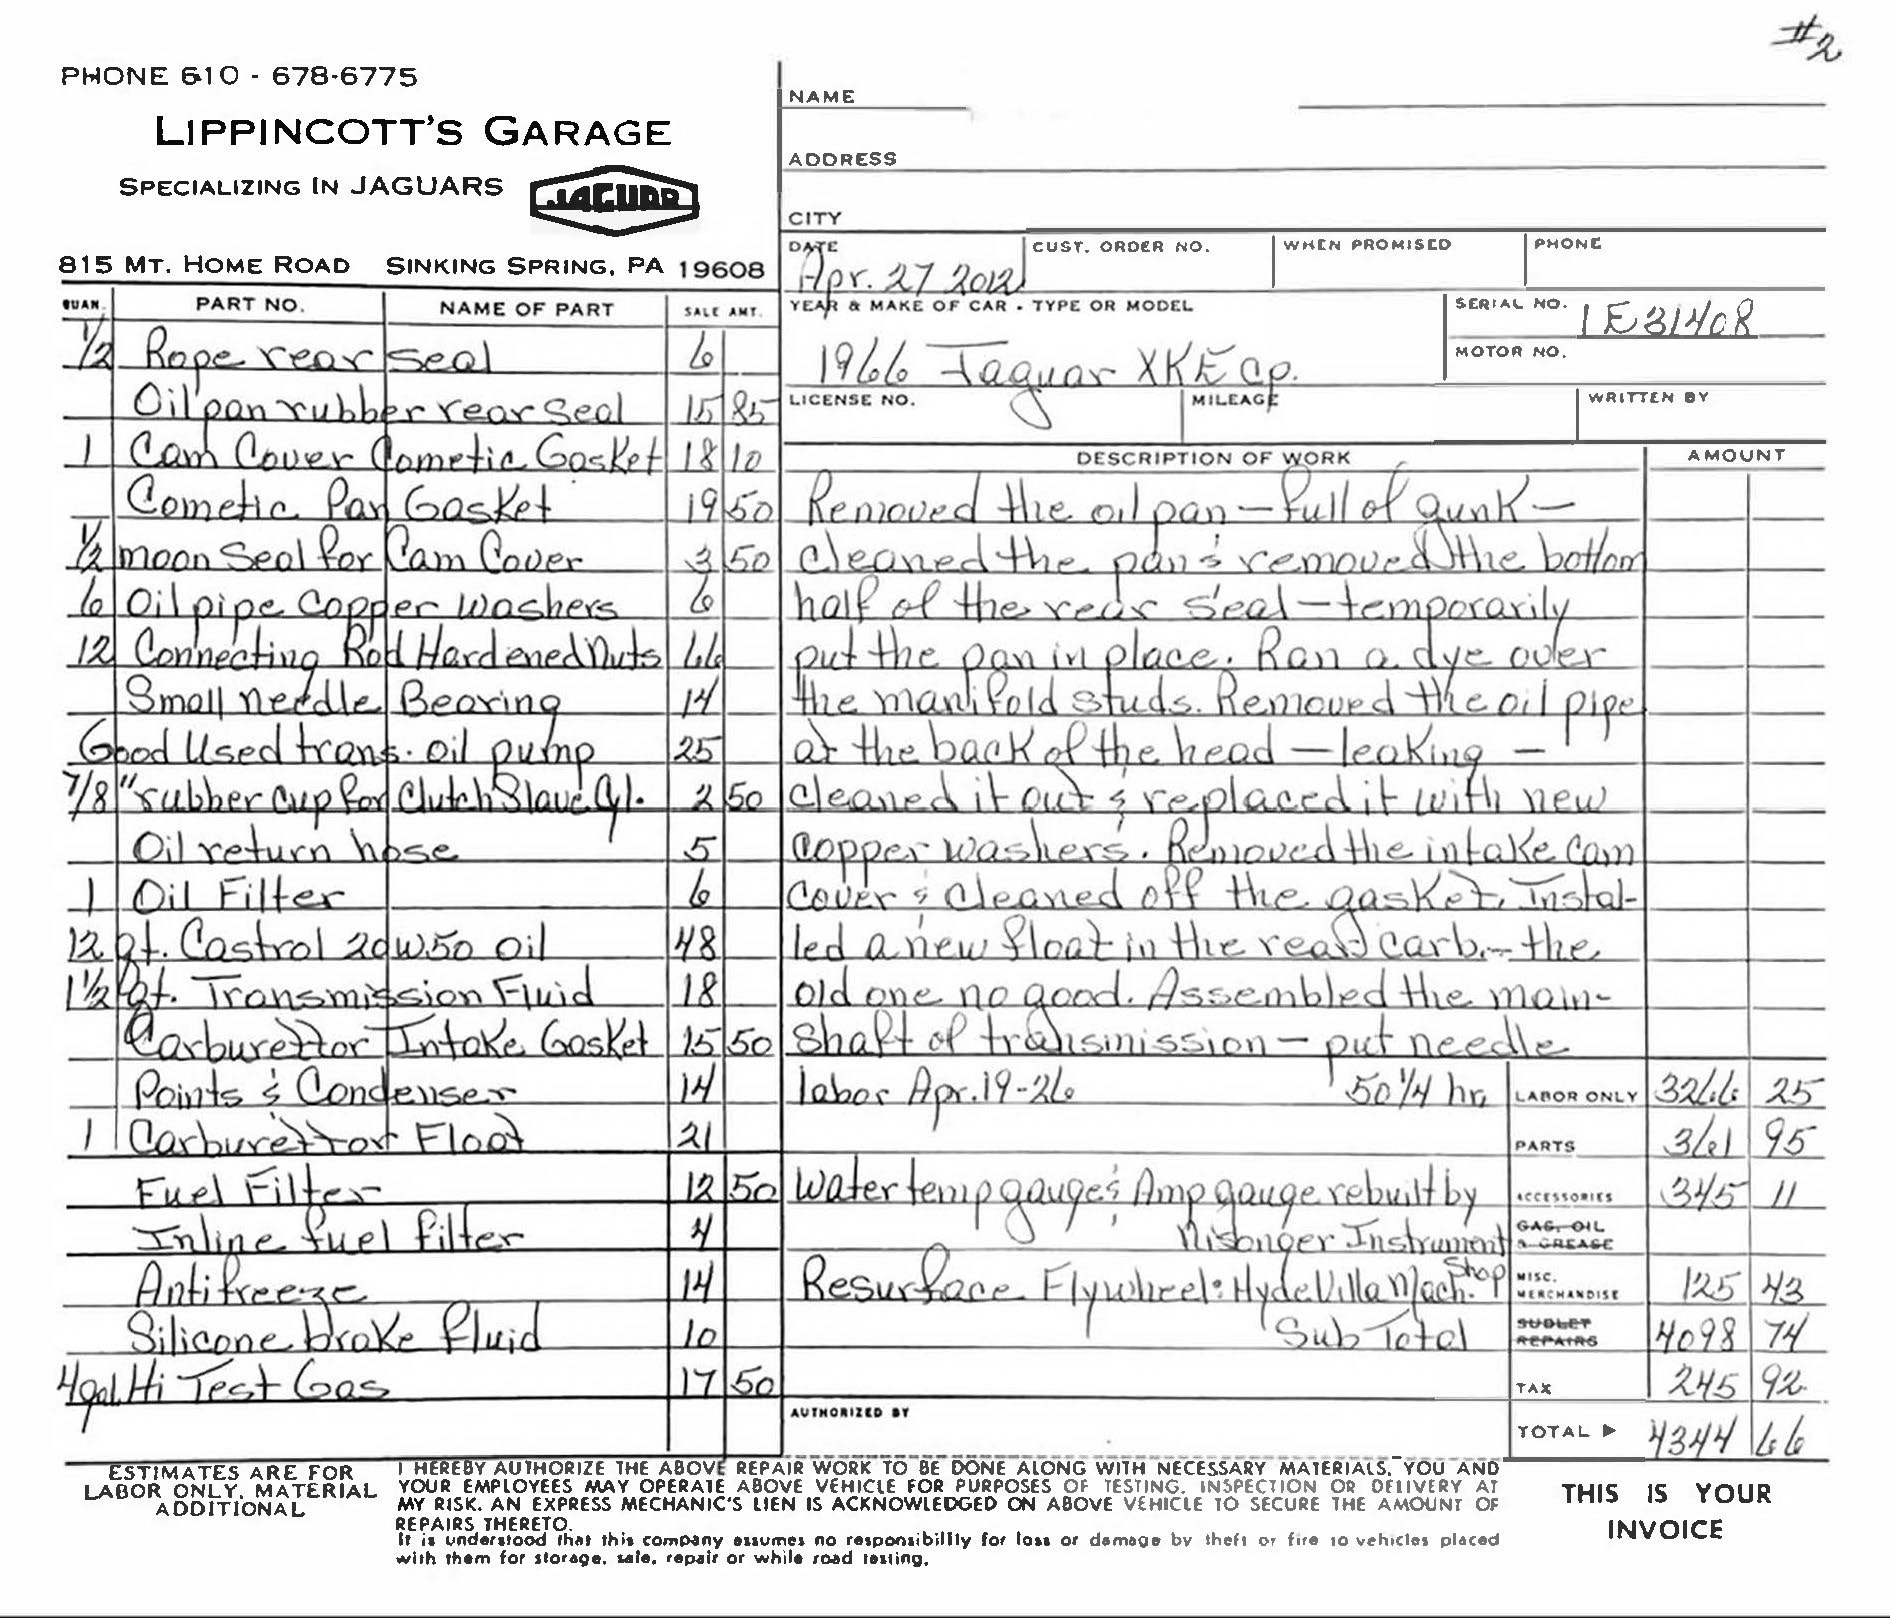 #2
PHONE 610 - 678-6775
LIPPINCOTT'S GARAGE
SPECIALIZING IN JAGUARS JAGUAR
815 MT. HOME ROAD SINKING SPRING, PA 19608
NAME
ADDRESS
CITY
DATE CUST. ORDER NO. WHEN PROMISED PHONE
Apr. 27 2012
YEAR & MAKE OF CAR - TYPE OR MODEL SERIAL NO. 1E31408
1966 Jaguar XKE Cp. MOTOR NO.
LICENSE NO. MILEAGE WRITTEN BY
QUAN. PART NO. NAME OF PART SALE AMT.
1/2 Rope rear seal 6
Oil pan rubber rear seal 15 85
1 Cam Cover Cometic Gasket 18 10
Cometic Pan Gasket 19 50
1/2 moon Seal for Cam Cover 3 50
6 Oil pipe Copper Washers 6
12 Connecting Rod Hardened Nuts 66
Small needle Bearing 14
Good Used trans. oil pump 25
7/8" rubber cup for Clutch Slave Cyl. 2 50
Oil return hose 5
1 Oil Filter 6
12 qt. Castrol 20W50 oil 48
1 1/2 qt. Transmission Fluid 18
Carburettor Intake Gasket 15 50
Points & Condenser 14
1 Carburettor Float 21
Fuel Filter 12 50
Inline fuel filter 4
Antifreeze 14
Silicone brake fluid 10
4 gal. Hi Test Gas 17 50
DESCRIPTION OF WORK AMOUNT
Removed the oil pan - full of gunk -
cleaned the pan & removed the bottom
half of the rear seal - temporarily
put the pan in place. Ran a dye over
the manifold studs. Removed the oil pipe
at the back of the head - leaking -
cleaned it out & replaced it with new
copper washers. Removed the intake cam
cover & cleaned off the gasket. Instal-
led a new float in the rear carb. - the
old one no good. Assembled the main-
shaft of transmission - put needle
labor Apr. 19-26 50 1/4 hr. LABOR ONLY 3266 25
PARTS 361 95
Water temp gauge & Amp gauge rebuilt by ACCESSORIES 345 11
Nisonger Instrument GAS, OIL & GREASE
Resurface Flywheel: Hyde Villa Mach. Shop MISC. MERCHANDISE 125 43
Sub Total SUBLET REPAIRS 4098 74
TAX 245 92
AUTHORIZED BY
TOTAL ▶ 4344 66
ESTIMATES ARE FOR
LABOR ONLY, MATERIAL
ADDITIONAL
I HEREBY AUTHORIZE THE ABOVE REPAIR WORK TO BE DONE ALONG WITH NECESSARY MATERIALS. YOU AND
YOUR EMPLOYEES MAY OPERATE ABOVE VEHICLE FOR PURPOSES OF TESTING, INSPECTION OR DELIVERY AT
MY RISK. AN EXPRESS MECHANIC'S LIEN IS ACKNOWLEDGED ON ABOVE VEHICLE TO SECURE THE AMOUNT OF
REPAIRS THERETO.
It is understood that this company assumes no responsibility for loss or damage by theft or fire to vehicles placed
with them for storage, sale, repair or while road testing.
THIS IS YOUR
INVOICE